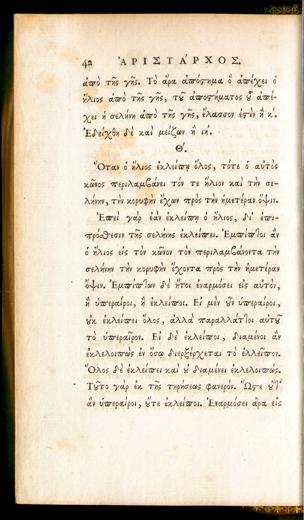 42 ἈΡΙΣΤΆΡΧΟΣ.
ἀπὸ τῆς γῆς. Τὸ ἄρα ἀπόστημα ὃ ἀπέχει ὁ
ἥλιος ἀπὸ τῆς γῆς, τοῦ ἀποστήματος οὗ ἀπέ-
χει ἡ σελήνη ἀπὸ τῆς γῆς, ἔλασσον ἐστὶν ἢ κ΄.
Ἐδείχθη δὲ καὶ μείζων ἢ ιή.
Θ΄.
Ὅταν ὁ ἥλιος ἐκλείπῃ ὅλος, τότε ὁ αὐτὸς
κῶνος περιλαμβάνει τόν τε ἥλιον καὶ τὴν σε-
λήνην, τὴν κορυφὴν ἔχων πρὸς τὴν ἡμετέραν ὄψιν.
Ἐπεὶ γὰρ ἐὰν ἐκλείπῃ ὁ ἥλιος, δι' ἐπι-
πρόσθεσιν τῆς σελήνης ἐκλείπει. Ἐμπίπτοι ἂν
ὁ ἥλιος εἰς τὸν κῶνον τὸν περιλαμβάνοντα τὴν
σελήνην τὴν κορυφὴν ἔχοντα πρὸς τὴν ἡμετέραν
ὄψιν. Ἐμπίπτων δὲ ἤτοι ἐναρμόσει εἰς αὐτὸν,
ἢ ὑπεραίροι, ἢ ἐκλείποι. Εἰ μὲν οὖν ὑπεραίροι,
οὐκ ἐκλείπει ὅλος, ἀλλὰ παραλλάτλοι αὐτοῦ
τὸ ὑπεραῖρον. Εἰ δὲ ἐκλείποι, διαμένοι ἂν
ἐκλελοιπὼς ἐν ὅσῳ διεξέρχεται τὸ ἐλλεῖπον.
Ὅλος δὲ ἐκλείπει καὶ οὐ διαμένει ἐκλελοιπώς.
Τοῦτο γὰρ ἐκ τῆς τηρήσεως φανερόν. Ὥστε οὔτ'
ἂν ὑπεραίροι, οὔτε ἐκλείποι. Ἐναρμόσει ἄρα εἰς